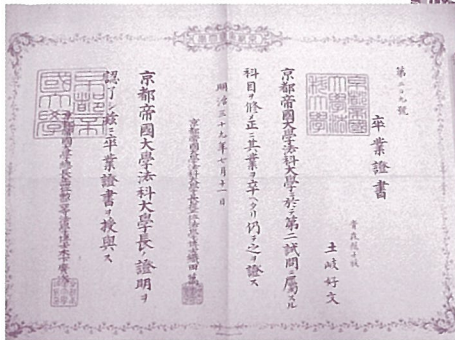 卒業證書
青森縣士族
土岐好文
京都帝國大學法科大學ニ於テ第二試問ニ屬スル
科目ヲ修メ正ニ其業ヲ卒ヘタリ仍テ之ヲ證ス
明治三十九年七月十一日
京都帝國大學法科大學長 法學博士織田萬
京都帝國大學法科大學長ノ證明ヲ
認了シ茲ニ卒業證書ヲ授與ス
京都帝國大學總長 勲二等法學博士木下廣次